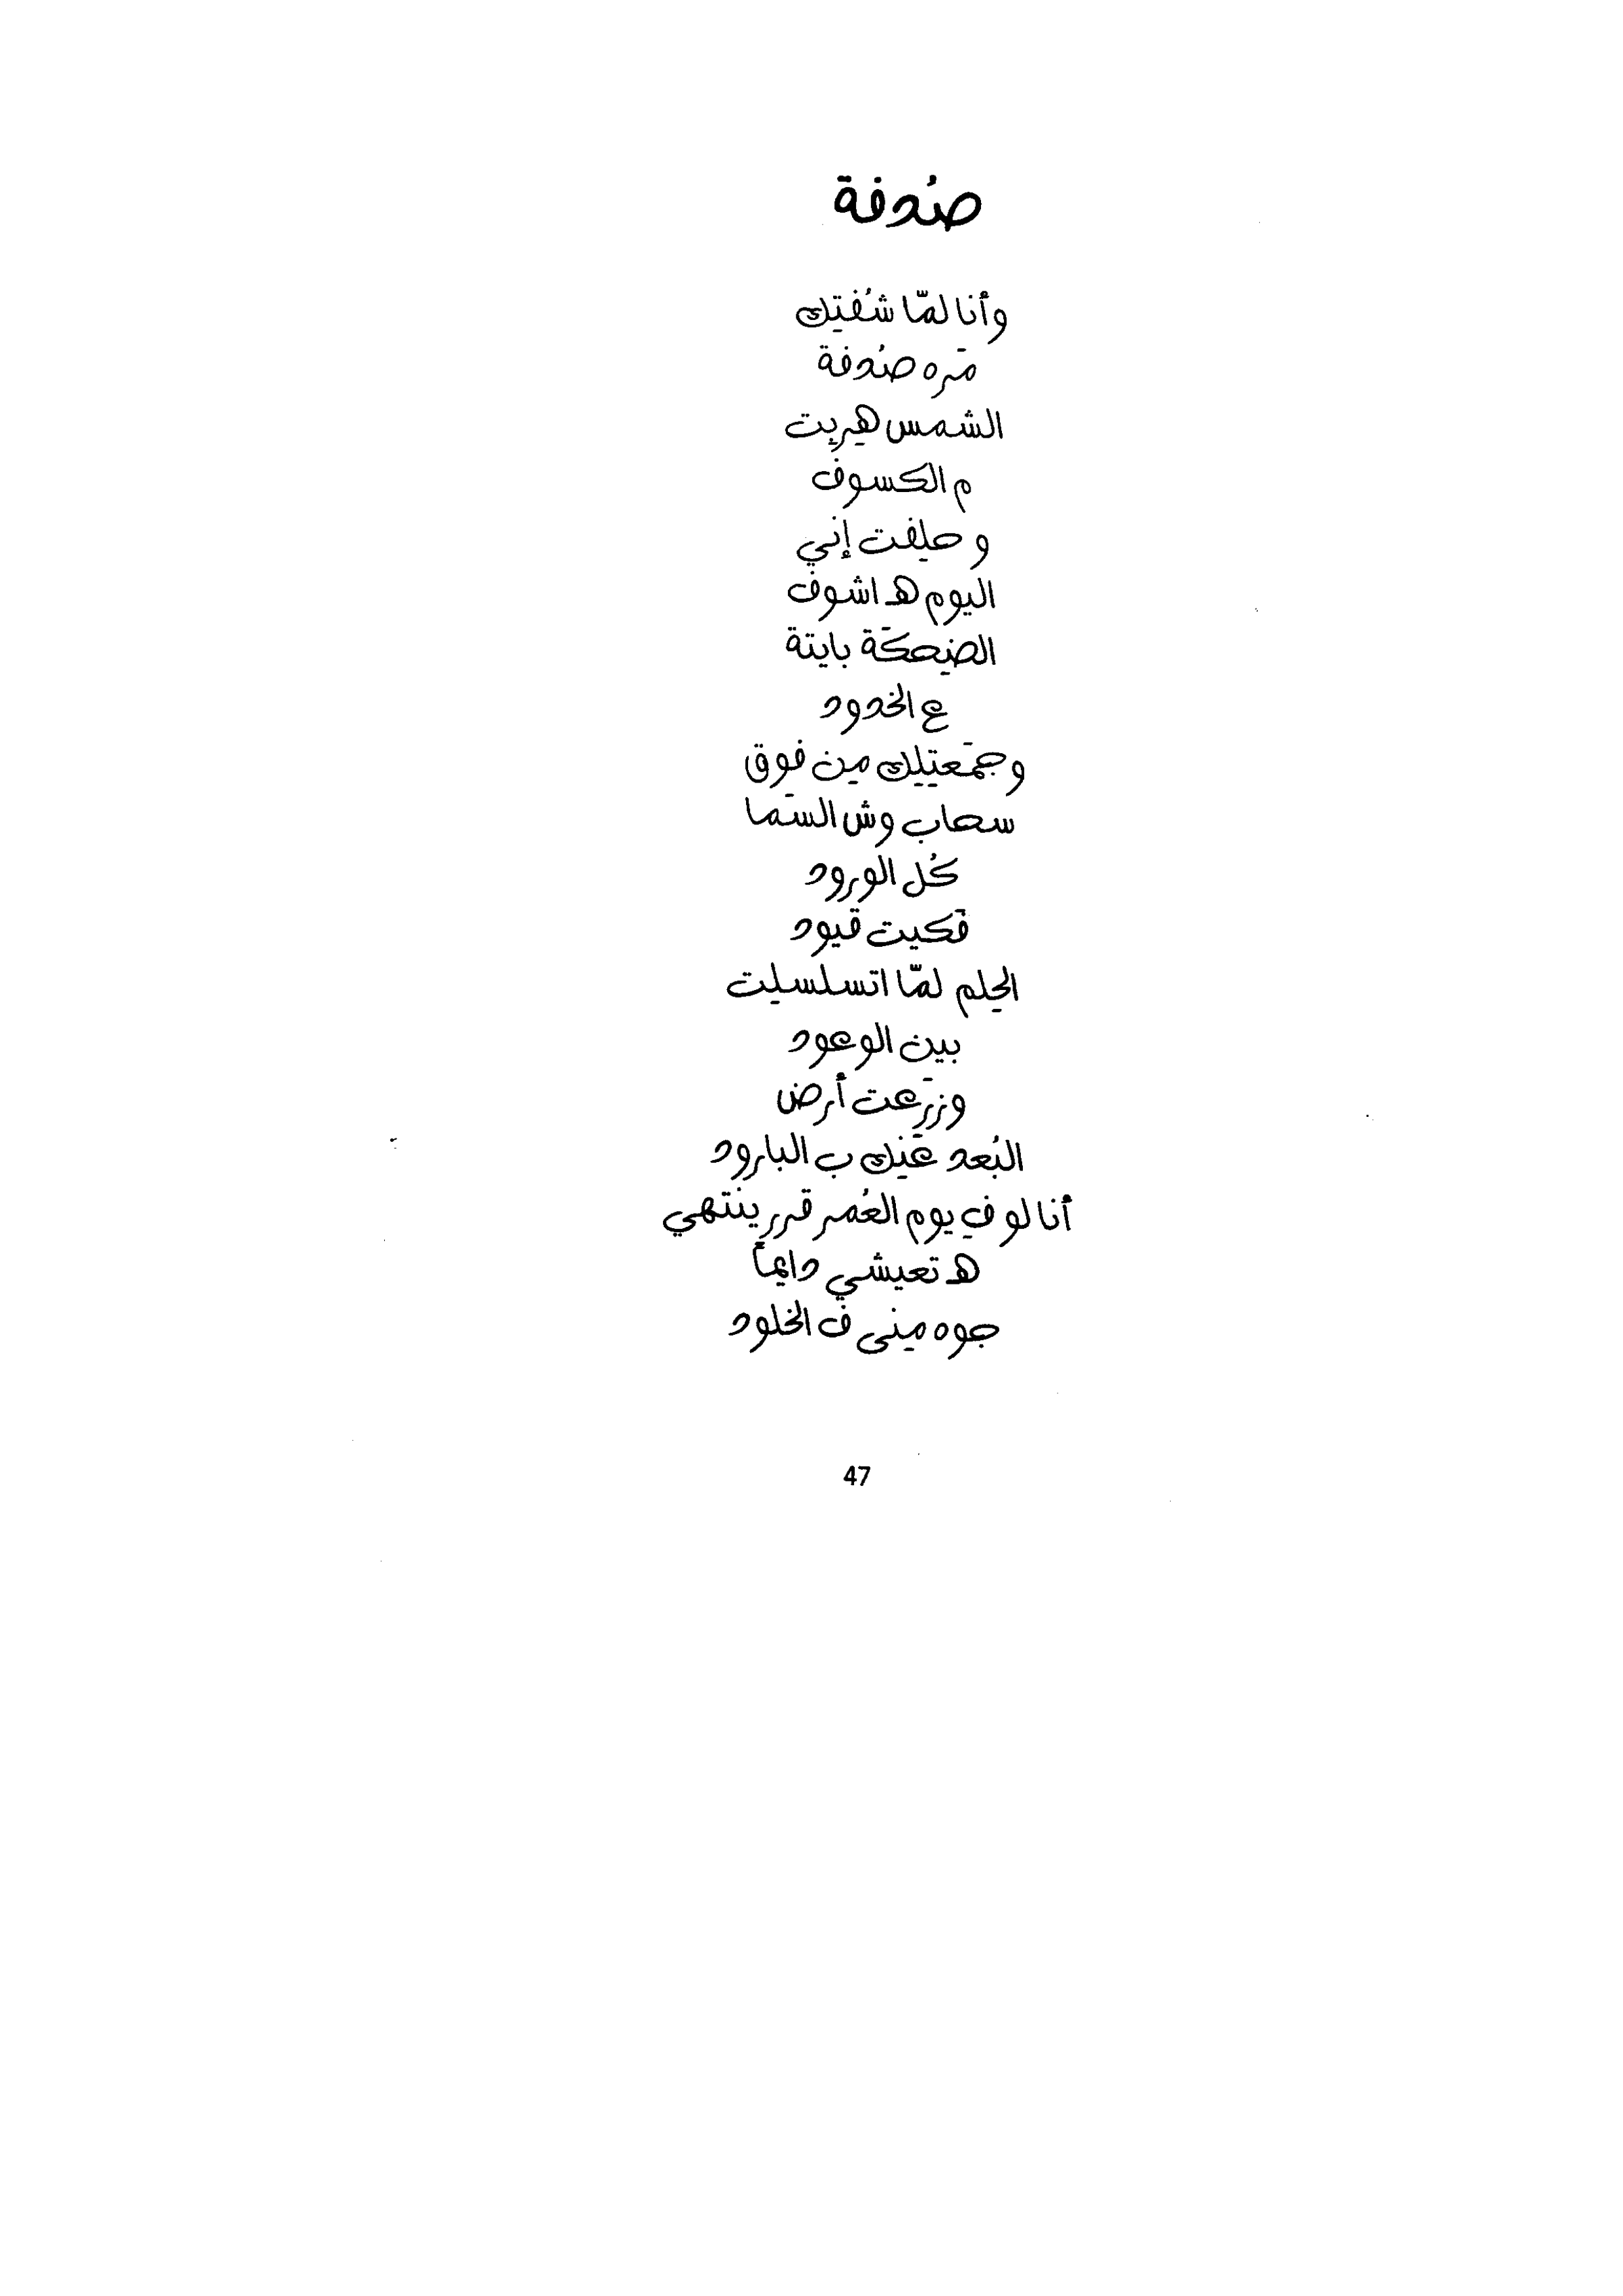 صُدفة
وأنا لمّا شُفتِك
مَره صُدفة
الشمس هِرِبِت
م الكسوف
و حلِفت إني
اليوم هـ اشوف
الضِحكَة بايتة
ع الخدود
وجَمَعتِلِك مِن فوق
سحاب وش السَما
كُل الورود
فَكيت قيود
الحِلم لمّا اتسلسلِت
بين الوعود
وزرَعت أرض
البُعد عَنِك ب البارود
أنا لو فِ يوم العُمر قرر ينتهي
هـ تعيشي دايماً
جوه مِنى ف الخلود
47